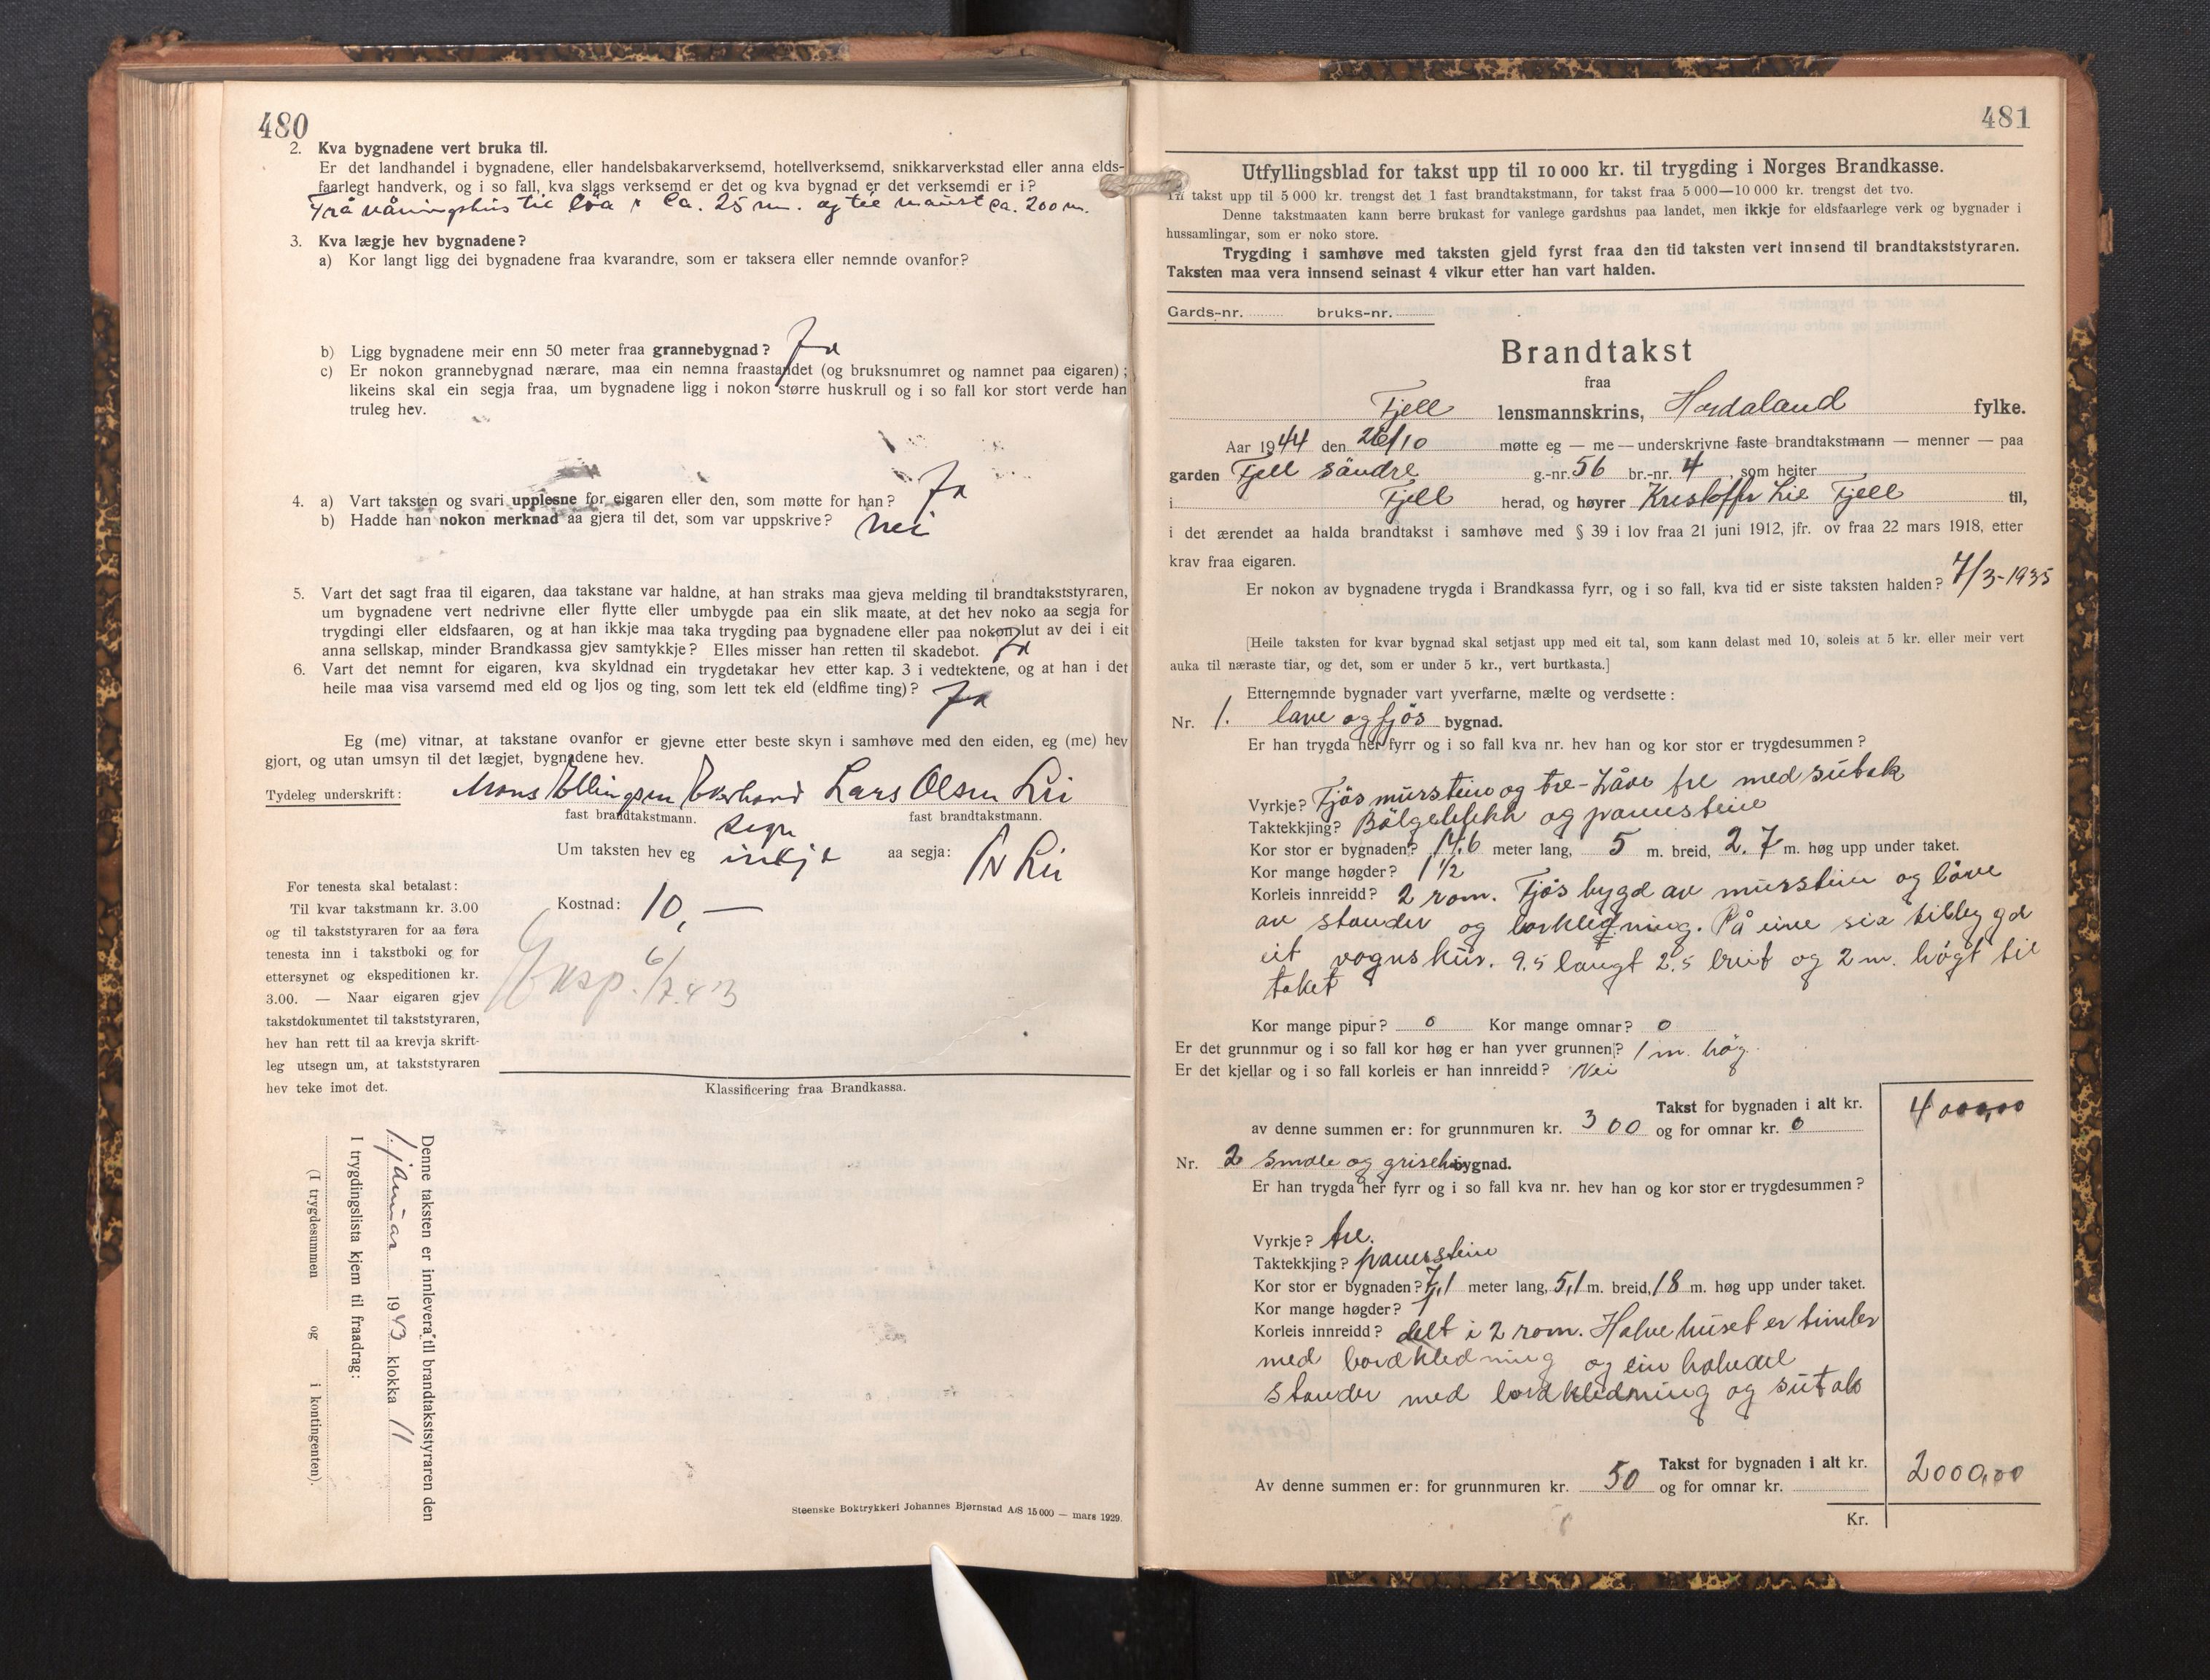 480
2. Kva bygnadene vert bruka til.
Er det landhandel i bygnadene, eller handelsbakarverksemd, hotellverksemd, snikkarverkstad eller anna elds-
faarlegt handverk, og i so fall, kva slags verksemd er det og kva bygnad er det verksemdi er i?
Frå våningshus til löa ca. 25 m. og til naust ca. 200 m.
3. Kva lægje hev bygnadene?
a) Kor langt ligg dei bygnadene fraa kvarandre, som er taksera eller nemnde ovanfor?
b) Ligg bygnadene meir enn 50 meter fraa grannebygnad? Ja
c) Er nokon grannebygnad nærare, maa ein nemna fraastandet (og bruksnumret og namnet paa eigaren);
likeins skal ein segja fraa, um bygnadene ligg i nokon større huskrull og i so fall kor stort verde han
truleg hev.
4. a) Vart taksten og svari upplesne for eigaren eller den, som møtte for han? Ja
b) Hadde han nokon merknad aa gjera til det, som var uppskrive? nei
5. Vart det sagt fraa til eigaren, daa takstane var haldne, at han straks maa gjeva melding til brandtakststyraren,
um bygnadene vert nedrivne eller flytte eller umbygde paa ein slik maate, at det hev noko aa segja for
trygdingi eller eldsfaaren, og at han ikkje maa taka trygding paa bygnadene eller paa nokon lut av dei i eit
anna sellskap, minder Brandkassa gjev samtykkje? Elles misser han retten til skadebot. Ja
6. Vart det nemnt for eigaren, kva skyldnad ein trygdetakar hev etter kap. 3 i vedtektene, og at han i det
heile maa visa varsemd med eld og ljos og ting, som lett tek eld (eldfime ting)? Ja
Eg (me) vitnar, at takstane ovanfor er gjevne etter beste skyn i samhøve med den eiden, eg (me) hev
gjort, og utan umsyn til det lægjet, bygnadene hev.
Tydeleg underskrift: Mons Ellingsen Ekerhovd Lars Olsen Lie
fast brandtakstmann. fast brandtakstmann.
Um taksten hev eg inkje aa segja: N Lie
For tenesta skal betalast:
Til kvar takstmann kr. 3.00
og til takststyraren for aa føra
tenesta inn i takstboki og for
ettersynet og ekspeditionen kr.
3.00. — Naar eigaren gjev
takstdokumentet til takststyraren,
hev han rett til aa krevja skrift-
leg utsegn um, at takststyraren
hev teke imot det.
Kostnad: 10,—
Eksp. 6/7.43
Klassificering fraa Brandkassa.
Denne taksten er innlevera till brandtakststyraren den
1. januar 1943 klokka 11
I trygdingslista kjem til fraadrag:
(I trygdesummen og i kontingenten).
Steenske Boktrykkeri Johannes Bjørnstad A/S 15 000 — mars 1929.
481
Utfyllingsblad for takst upp til 10 000 kr. til trygding i Norges Brandkasse.
Til takst upp til 5 000 kr. trengst det 1 fast brandtakstmann, for takst fraa 5 000—10 000 kr. trengst det tvo.
Denne takstmaaten kann berre brukast for vanlege gardshus paa landet, men ikkje for eldsfaarlege verk og bygnader i
hussamlingar, som er noko store.
Trygding i samhøve med taksten gjeld fyrst fraa den tid taksten vert innsend til brandtakststyraren.
Taksten maa vera innsend seinast 4 vikur etter han vart halden.
Gards-nr. bruks-nr.
Brandtakst
fraa
Fjell lensmannskrins, Hordaland fylke.
Aar 1944 den 26/10 møtte eg — me — underskrivne faste brandtakstmann — menner — paa
garden Fjell söndre g.-nr. 56 br.-nr. 4, som heiter
i Fjell herad, og høyrer Kristoffer Lie Fjell til,
i det ærendet aa halda brandtakst i samhøve med § 39 i lov fraa 21 juni 1912, jfr. ov fraa 22 mars 1918, etter
krav fraa eigaren.
Er nokon av bygnadene trygda i Brandkassa fyrr, og i so fall, kva tid er siste taksten halden? 7/3-1935
[Heile taksten for kvar bygnad skal setjast upp med eit tal, som kann delast med 10, soleis at 5 kr. eller meir vert
auka til næraste tiar, og det, som er under 5 kr., vert burtkasta.]
Etternemnde bygnader vart yverfarne, mælte og verdsette:
Nr. 1. løve og fjös bygnad.
Er han trygda her fyrr og i so fall kva nr. hev han og kor stor er trygdesummen?
Vyrkje? Fjös murstein og tre - Låve tre med sutak
Taktekkjing? Bölgeblekk og pannestein
Kor stor er bygnaden? 14,6 meter lang, 5 m. breid, 2.7 m. høg upp under taket.
Kor mange høgder? 1 1/2
Korleis innreidd? 2 rom. Fjös bygd av murstein og löve
av stander og bordkledning. På eine sia tilbygd
eit vognskur. 9.5 langt 2.5 breit og 2 m. högt til
taket
Kor mange pipur? 0 Kor mange omnar? 0
Er det grunnmur og i so fall kor høg er han yver grunnen? 1 m. høg
Er det kjellar og i so fall korleis er han innreidd? Nei
Takst for bygnaden i alt kr. 4000,00
av denne summen er: for grunnmuren kr. 300 og for omnar kr. 0
Nr. 2 Smale og grisehus bygnad.
Er han trygda her fyrr og i so fall kva nr. hev han og kor stor er trygdesummen?
Vyrkje? tre.
Taktekkjing? pannestein
Kor stor er bygnaden? 7,1 meter lang, 5,1 m. breid, 18 m. høg upp under taket.
Kor mange høgder? 1
Korleis innreidd? delt i 2 rom. Halve huset er timber
med bordkledning og ein halvdel
stander med bordkledning og sutak
Takst for bygnaden i alt kr. 2000,00
Av denne summen er: for grunnmuren kr. 50 og for omnar kr.
Kr.